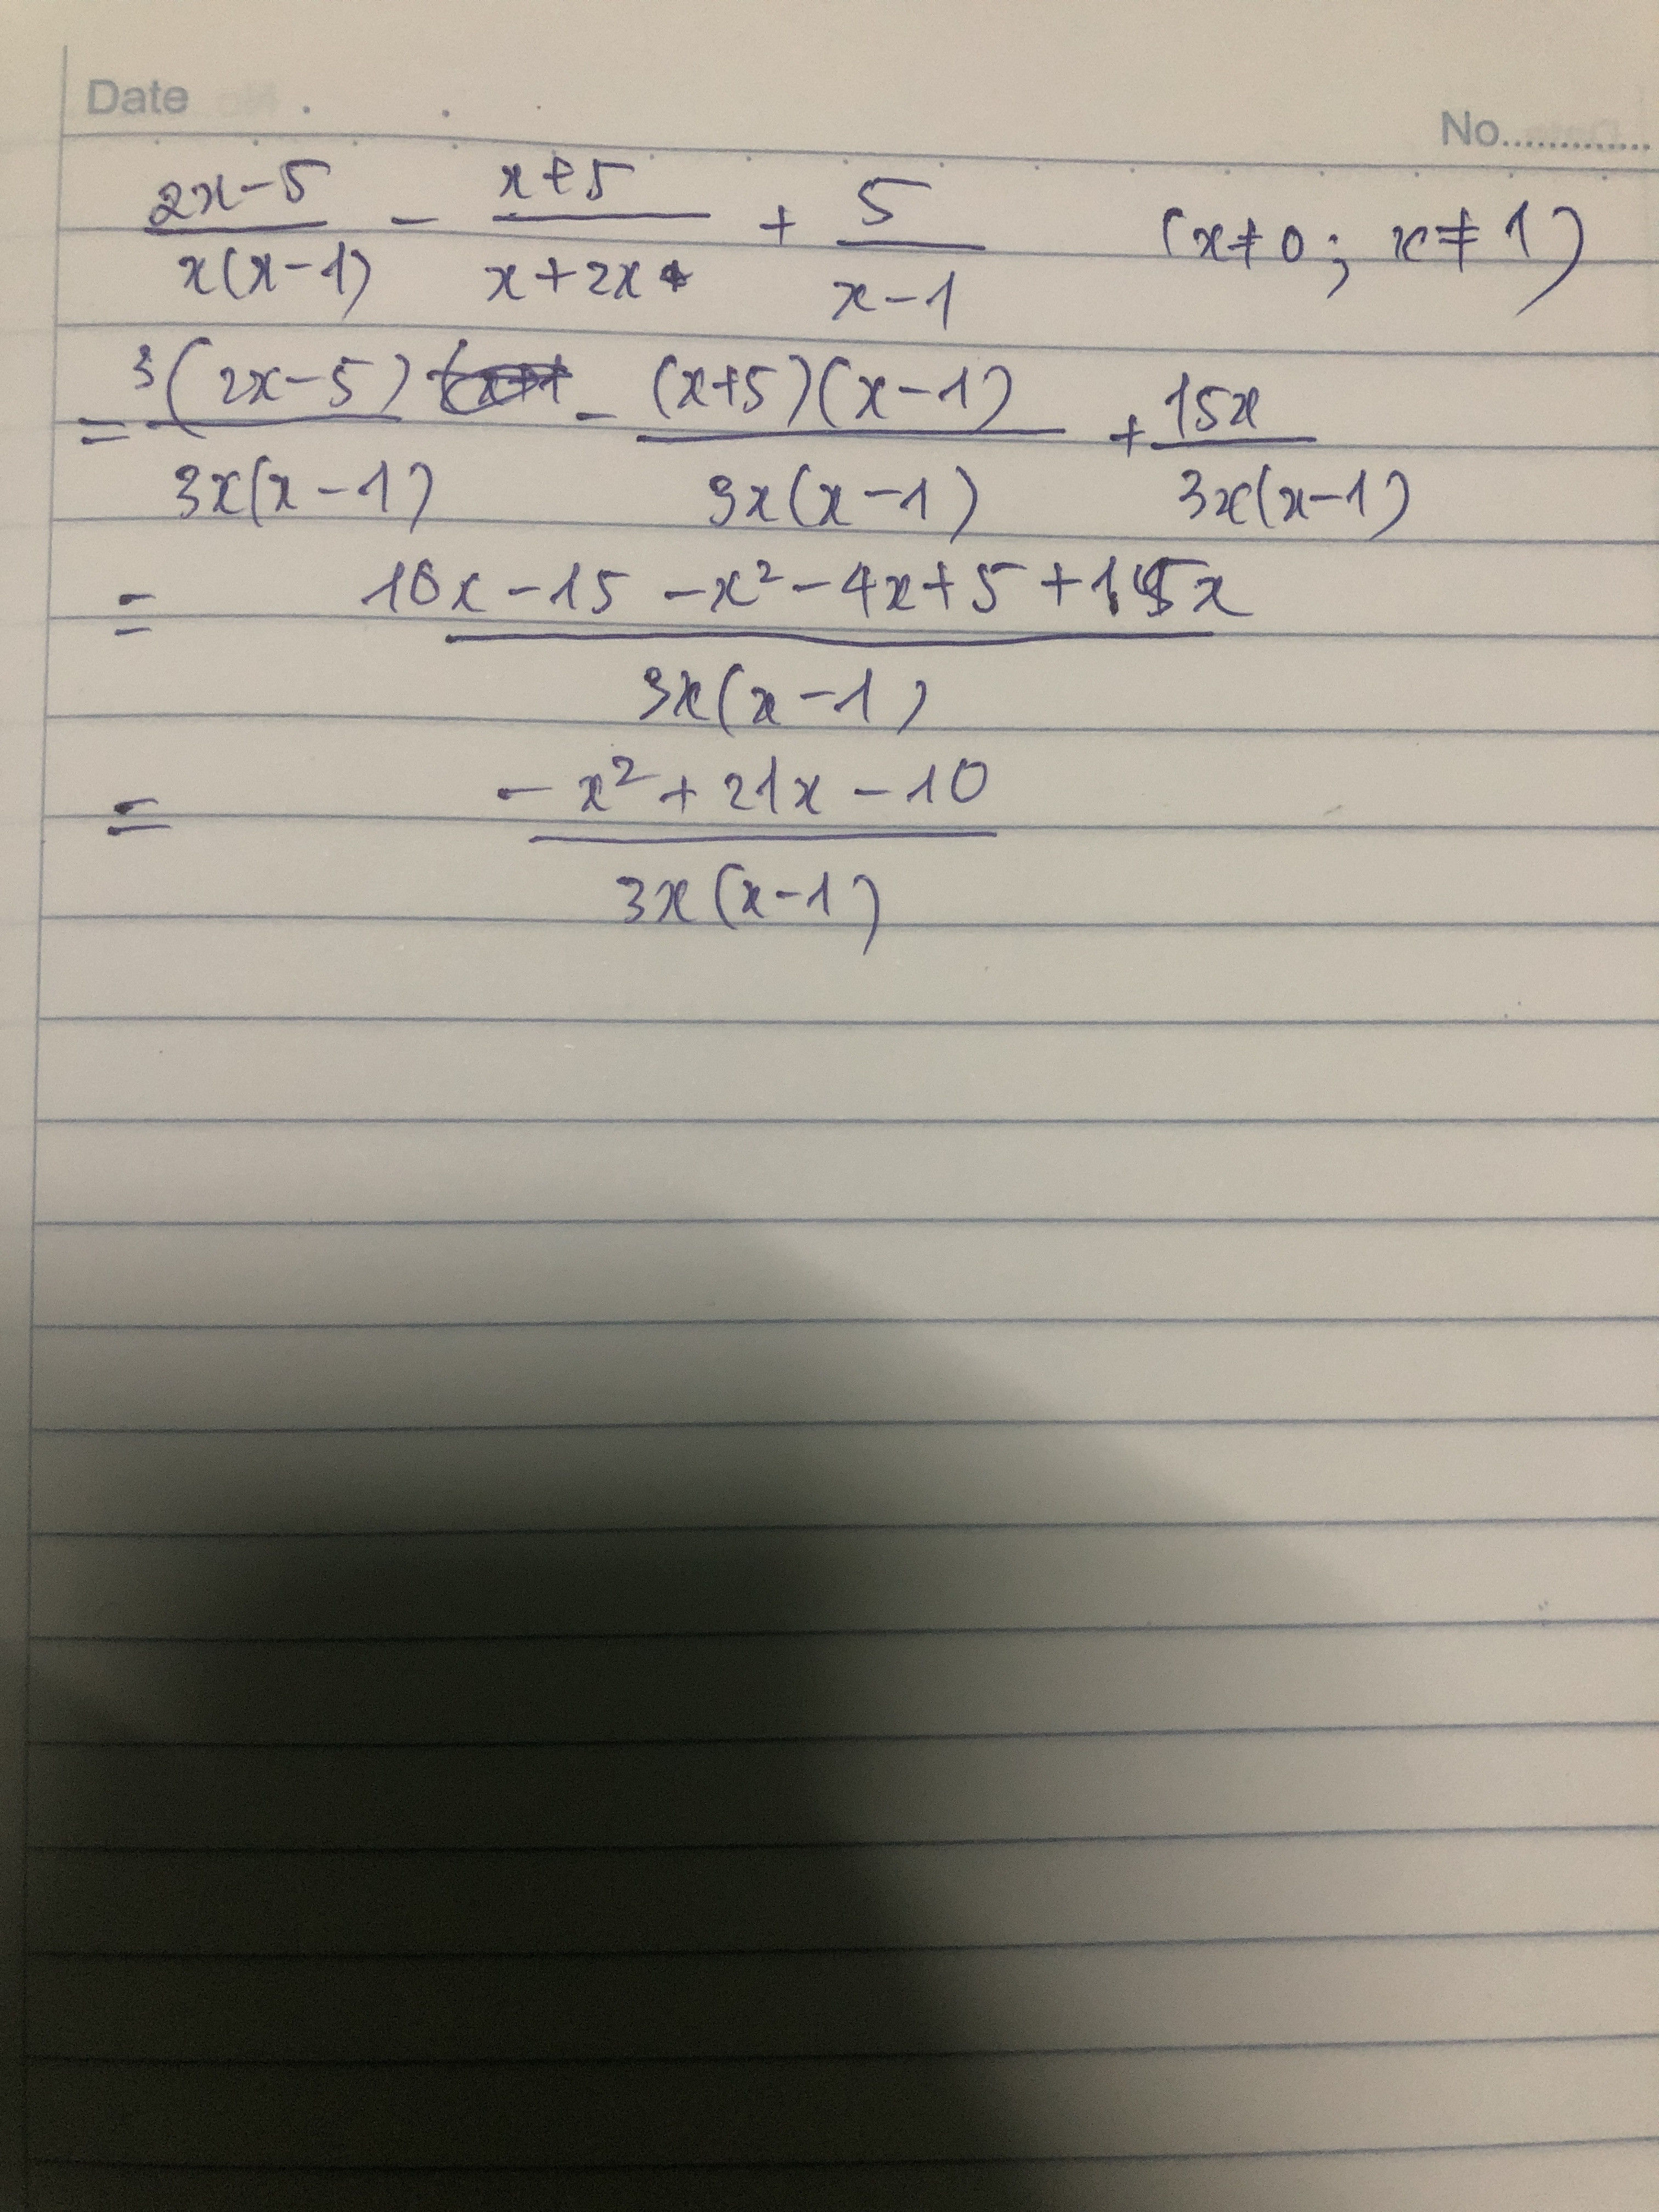 Date No.
(2x-5)/(x(x-1)) - (x+5)/(x+2x) + 5/(x-1) (x≠0; x≠1)
= 3(2x-5)/(3x(x-1)) - (x+5)(x-1)/(3x(x-1)) + 15x/(3x(x-1))
= (10x-15-x²-4x+5+15x)/(3x(x-1))
= (-x²+21x-10)/(3x(x-1))